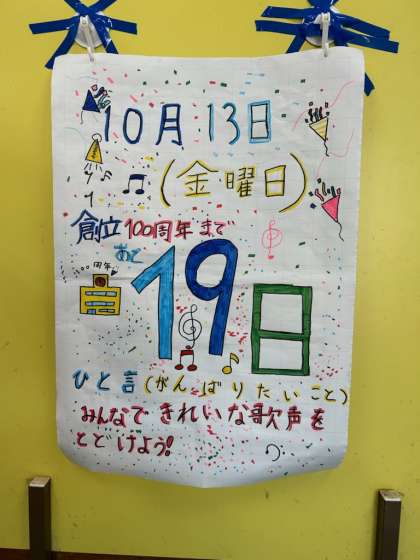 10月13日
(金曜日)
創立100周年まで
あと
19日
周年
ひと言(がんばりたいこと)
みんなできれいな歌声を
とどけよう!